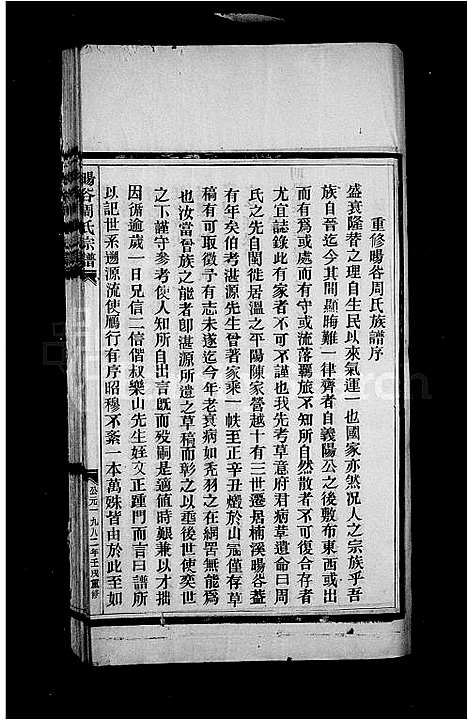 重修暘谷周氏族譜序
盛衰隆替之理自生民以來氣運一也國家亦然况人之宗族乎吾
族自晉迄今其間顯晦難一律齊者自義陽公之後敷布東西或出
而有爲或處而有守或流落羈旅不知所自然散者不可復合存者
尤宜誌錄此有家者不可不謹也我先考草意府君病草遺命曰周
氏之先自閩徙居溫之平陽陳家營越十有三世遷居楠溪暘谷蓋
有年矣伯考湛源先生曾著家乘一帙至正辛丑燬於山寇僅存草
稿有可取徵予有志未遂迄今年老衰病如禿羽之在網罟無能爲
也汝當晉族之能者卽湛源所遺之草稿而彰之以垂後世使奕世
之下謹守參考使人知所自出言旣而歿嗣是適値時艱兼以才拙
因循逾歲一日兄信二僖偕叔樂山先生姪文正踵門而言曰譜所
以記世系遡源流使鴈行有序昭穆不紊一本萬殊皆由於此至如
暘谷周氏宗譜
公元一九八二年壬戌重修